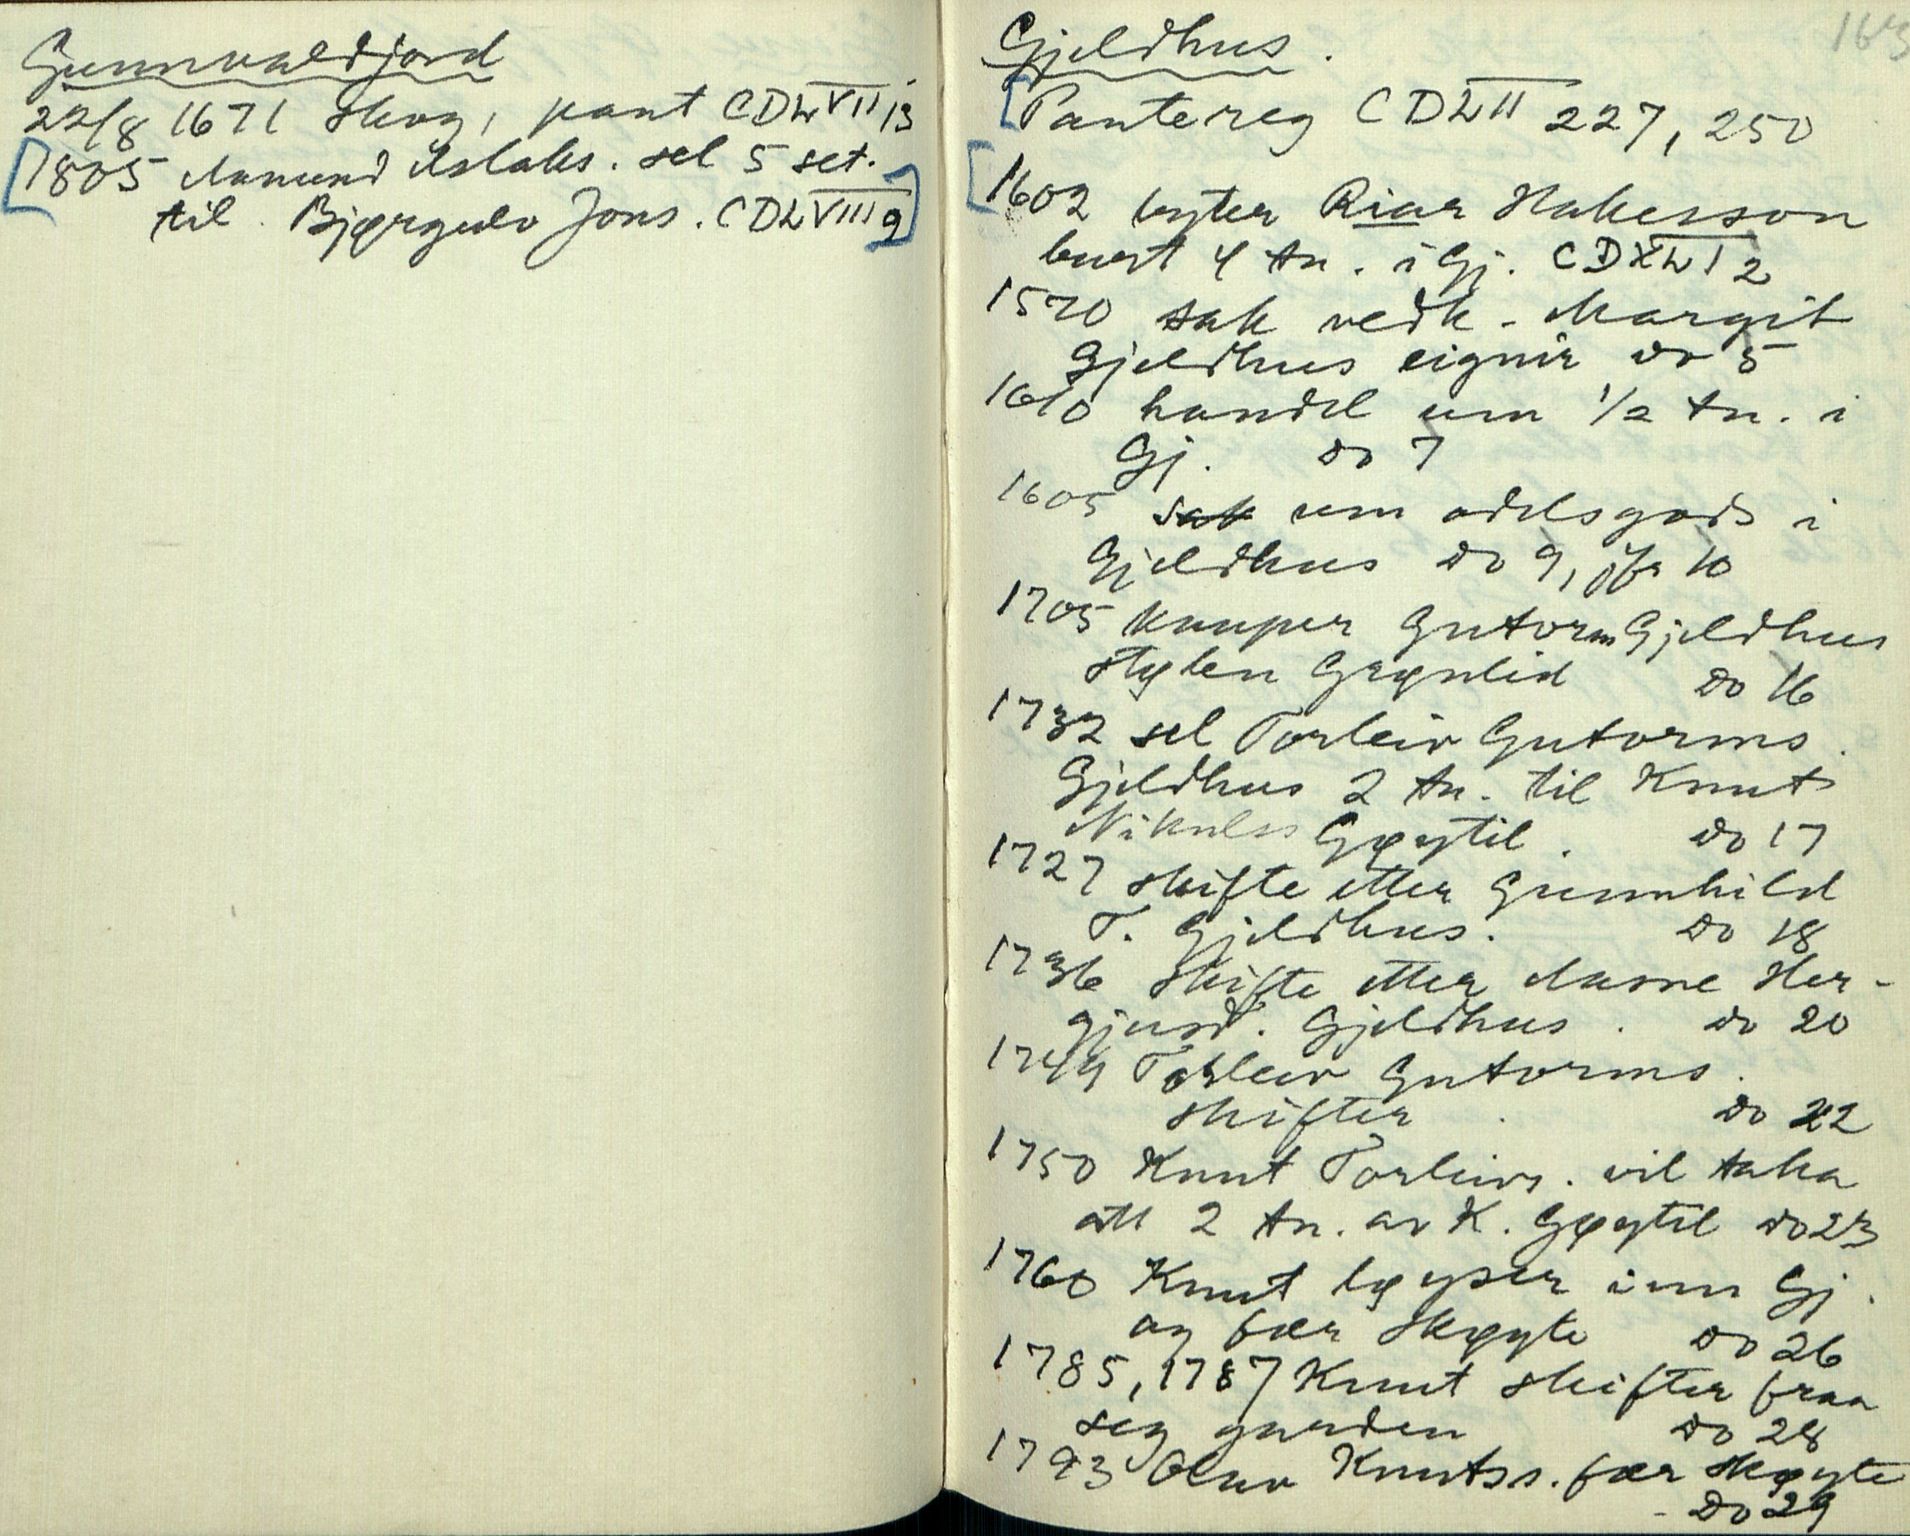 Gunnvaldjord
22/8 1671 skog, pant CDLVII 13
[1805 Aamund Aslaks. sel 5 set.
til Bjørgulv Jons. CDLVIII 9]
163
Gjeldhus.
[Pantereg CDLII 227, 250
[1602 byter Riar Hakesson
burt 4 tn. i Gj. CDXLI 2
1570 sak vedk. Margit
Gjeldhus eignir do 5
1610 handel um 1/2 tn. i
Gj. do 7
1605 sak um odelsgods i
Gjeldhus do 9, jfr 10
1705 kauper Gutorm Gjeldhus
støylen Grønlid do 16
1732 sel Torleiv Gutorms.
Gjeldhus 2 tn. til Knut
Nikulss Gøytil. do 17
1727 skifte etter Gunnhild
T. Gjeldhus. do 18
1736 skifte etter Aasne Her-
gjusd. Gjeldhus. do 20
1744 Torleiv Gutorms.
skifter. do 22
1750 Knut Torleivs. vil taka
att 2 tn. av K. Gøytil do 23
1760 Knut løyser inn Gj.
og fær skøyte do 26
1785, 1787 Knut skifter fraa
seg garden do 28
1793 Olav Knutss. fær skøyte
do 29